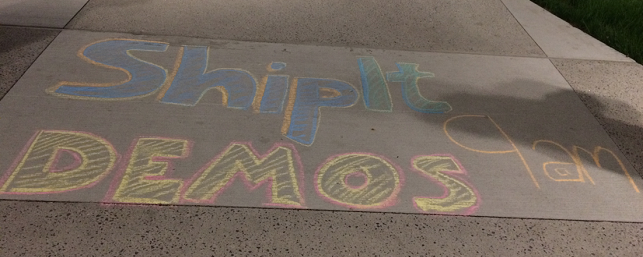 ShipIt
DEMOS
9am